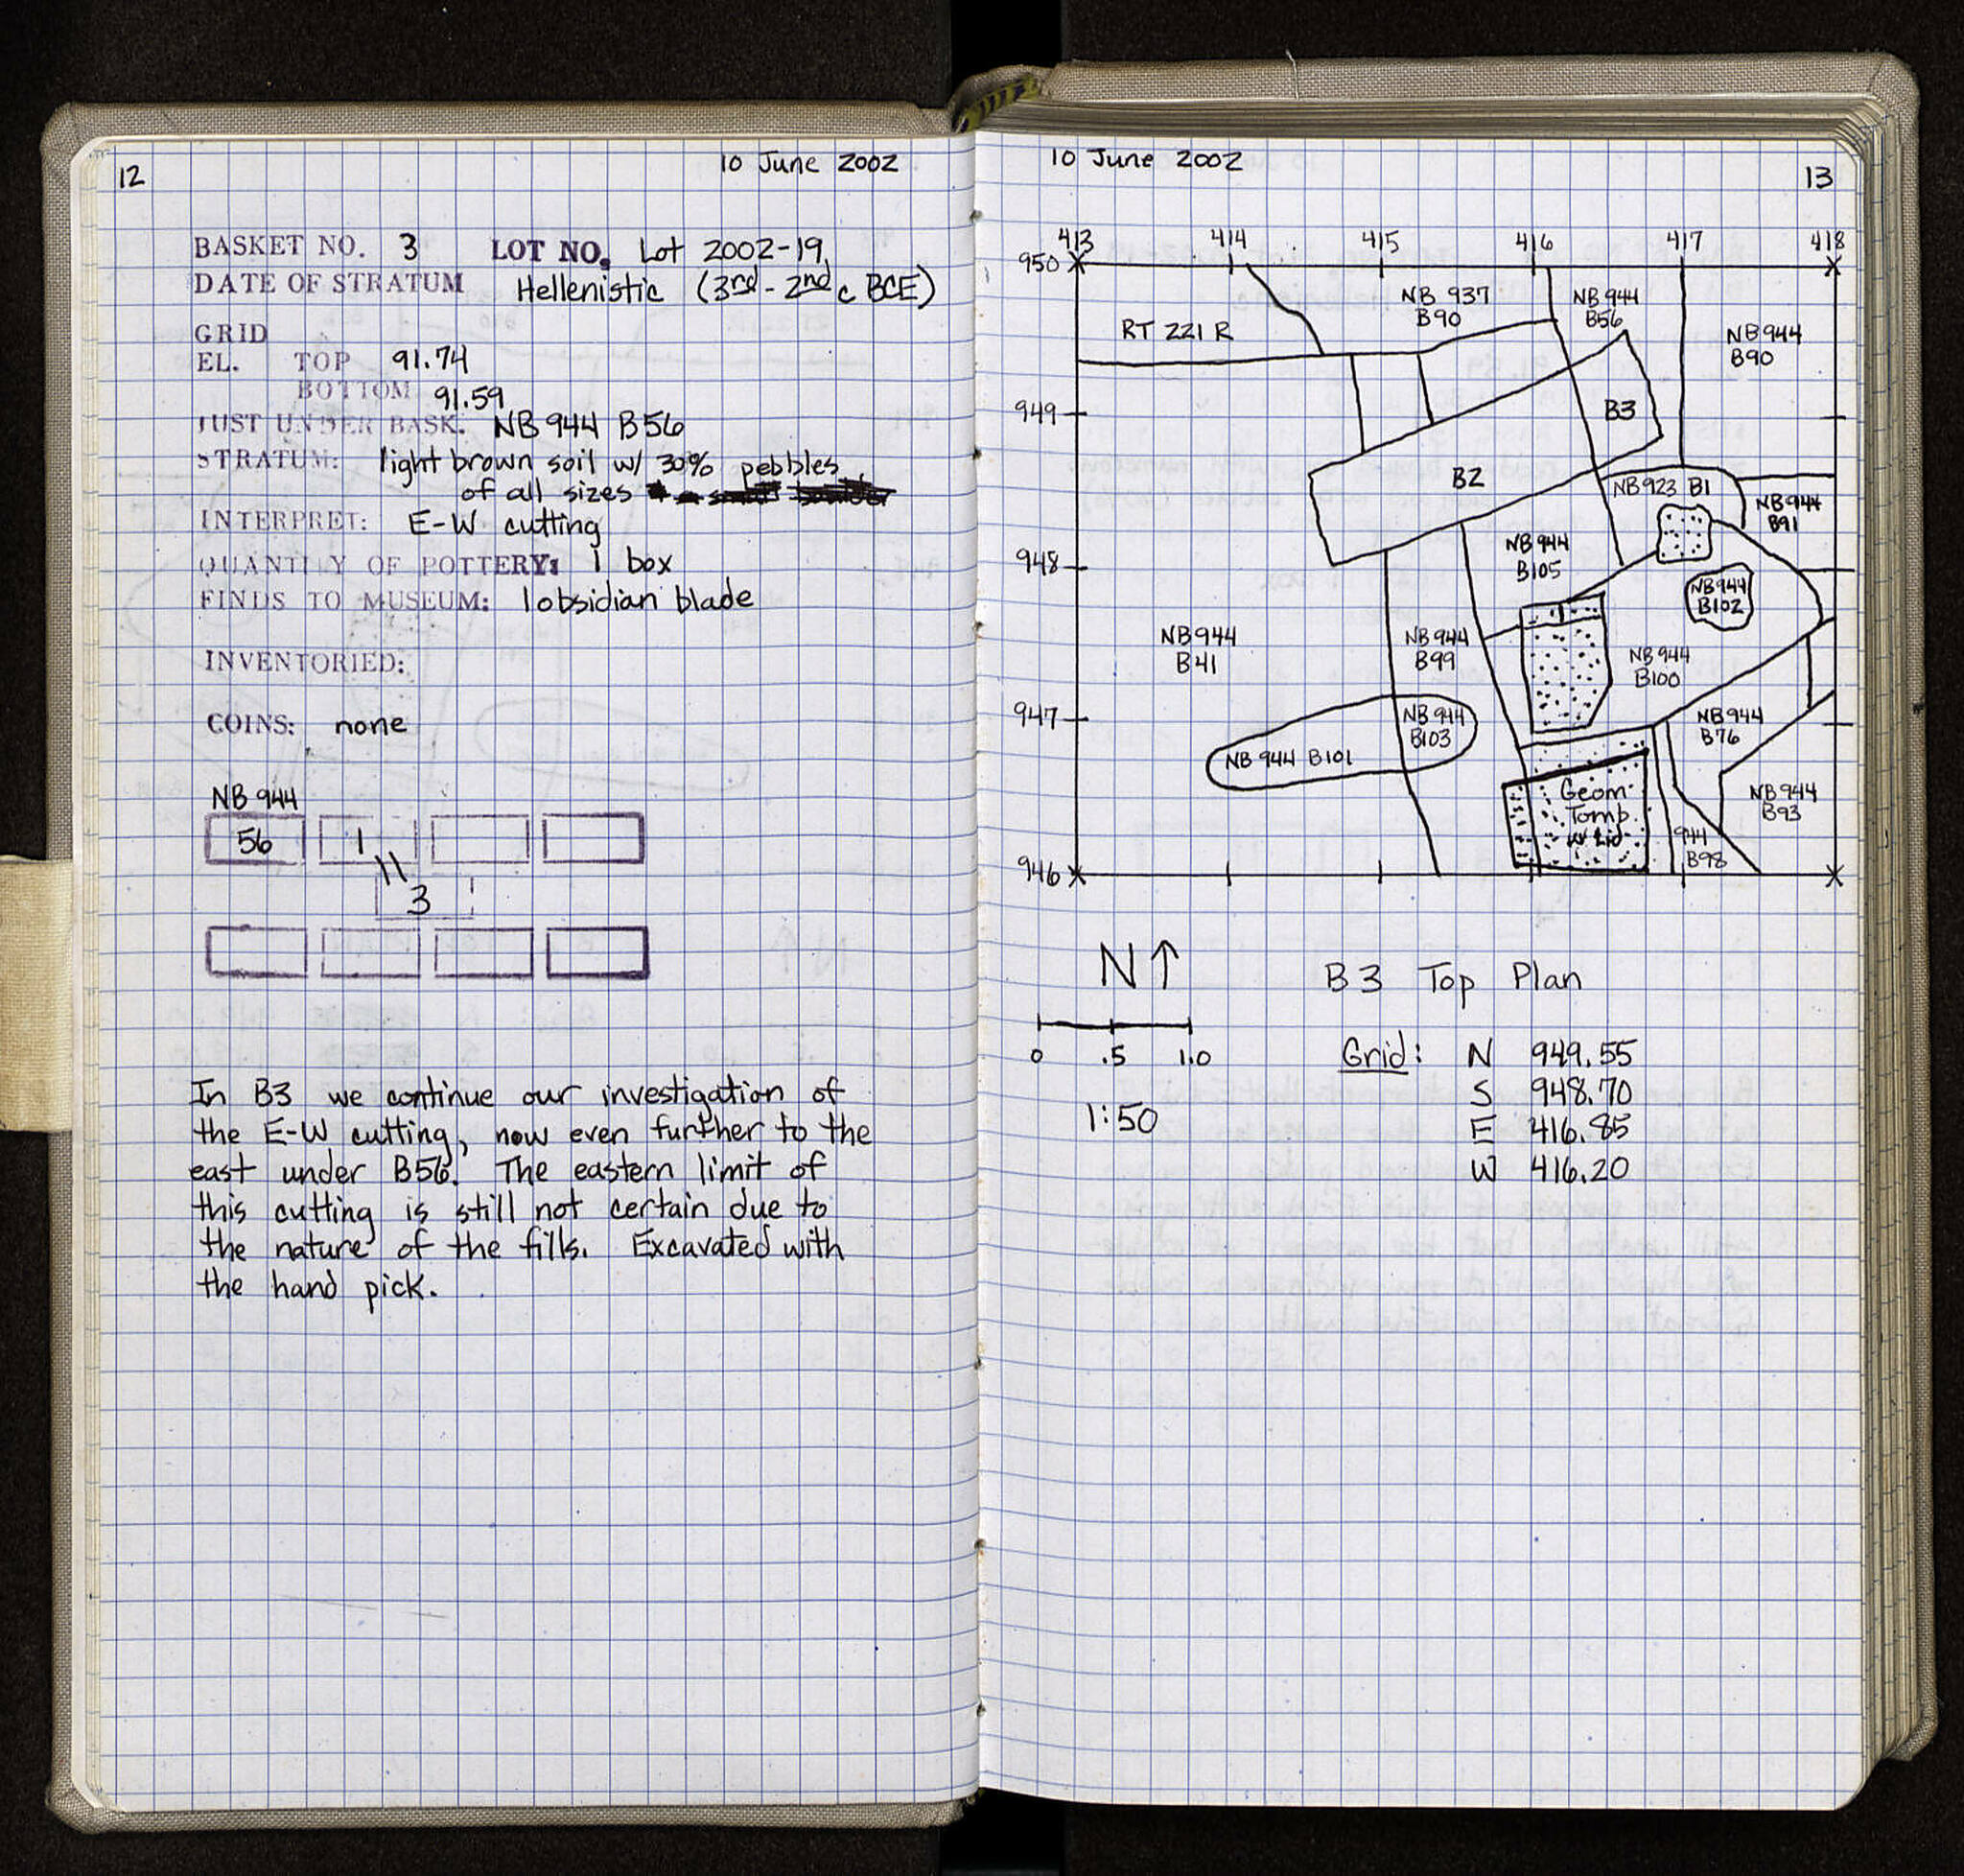 12
10 June 2002
BASKET NO. 3 LOT NO. Lot 2002-19
DATE OF STRATUM Hellenistic (3rd-2nd c BCE)
GRID
EL. TOP 91.74
BOTTOM 91.59
JUST UNDER BASK: NB 944 B56
STRATUM: light brown soil w/ 30% pebbles
of all sizes
INTERPRET: E-W cutting
QUANTITY OF POTTERY: 1 box
FINDS TO MUSEUM: 1 obsidian blade
INVENTORIED:
COINS: none
NB 944
56 1
3
In B3 we continue our investigation of
the E-W cutting, now even further to the
east under B56. The eastern limit of
this cutting is still not certain due to
the nature of the fills. Excavated with
the hand pick.
10 June 2002
13
413 414 415 416 417 418
950
NB 937
B90
NB 944
B56
RT 221 R
NB 944
B90
949
B3
B2
NB 923 B1
NB 944
B91
948
NB 944
B105
NB 944
B102
NB 944
B41
NB 944
B99
NB 944
B100
947
NB 944
B103
NB 944
B76
NB 944 B101
Geom.
Tomb
w Lid
NB 944
B93
944
B98
946
N↑
B3 Top Plan
0 .5 1.0
Grid: N 949.55
S 948.70
E 416.85
W 416.20
1:50